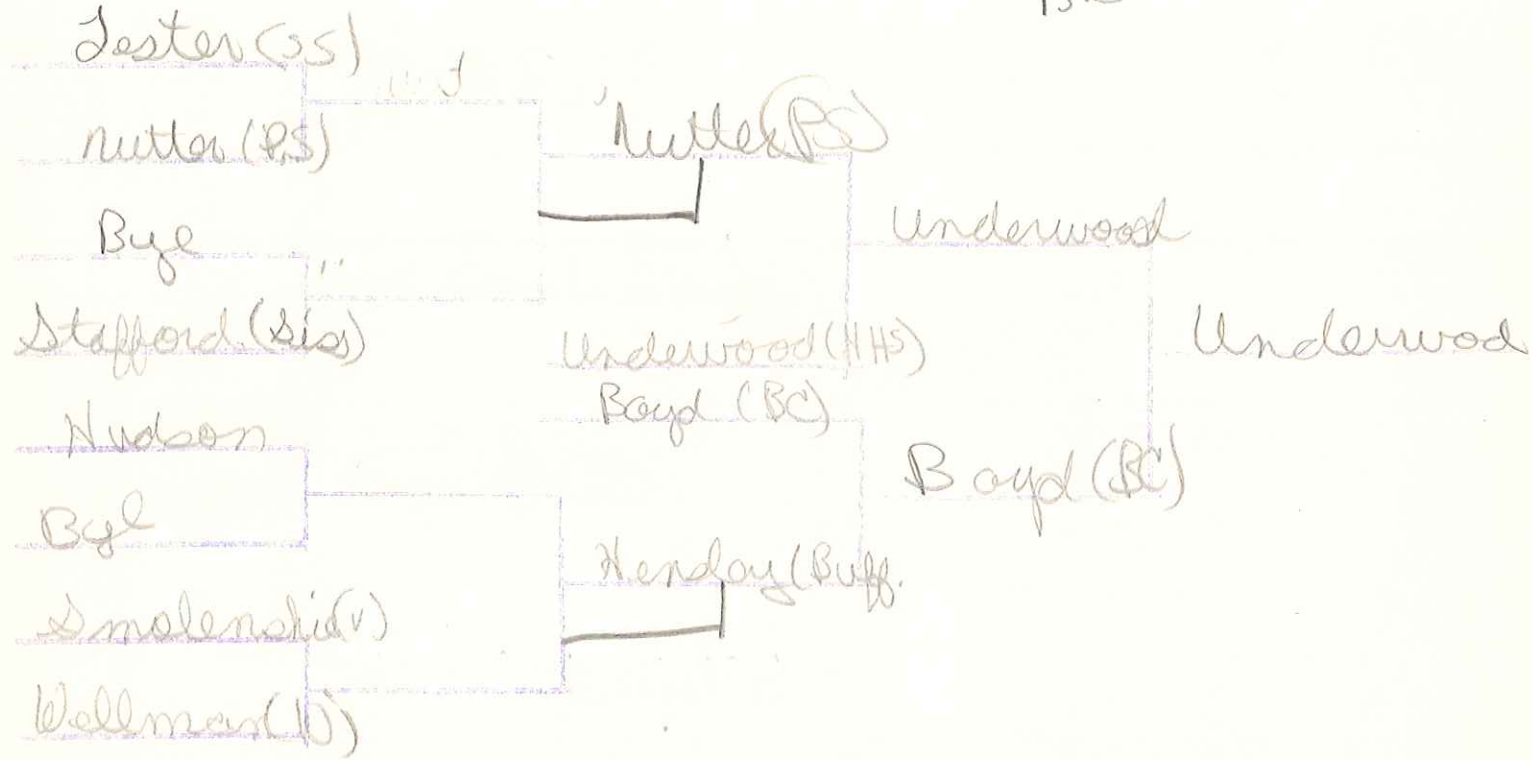 Lester (SS)
Nutter (PS)
Bye
Stafford (Sis)
Hudson
Bye
Smolenski (V)
Wellman (W)
Nutter (PS)
Underwood (HHS)
Boyd (BC)
Henday (Buff.
Underwood
Boyd (BC)
Underwod